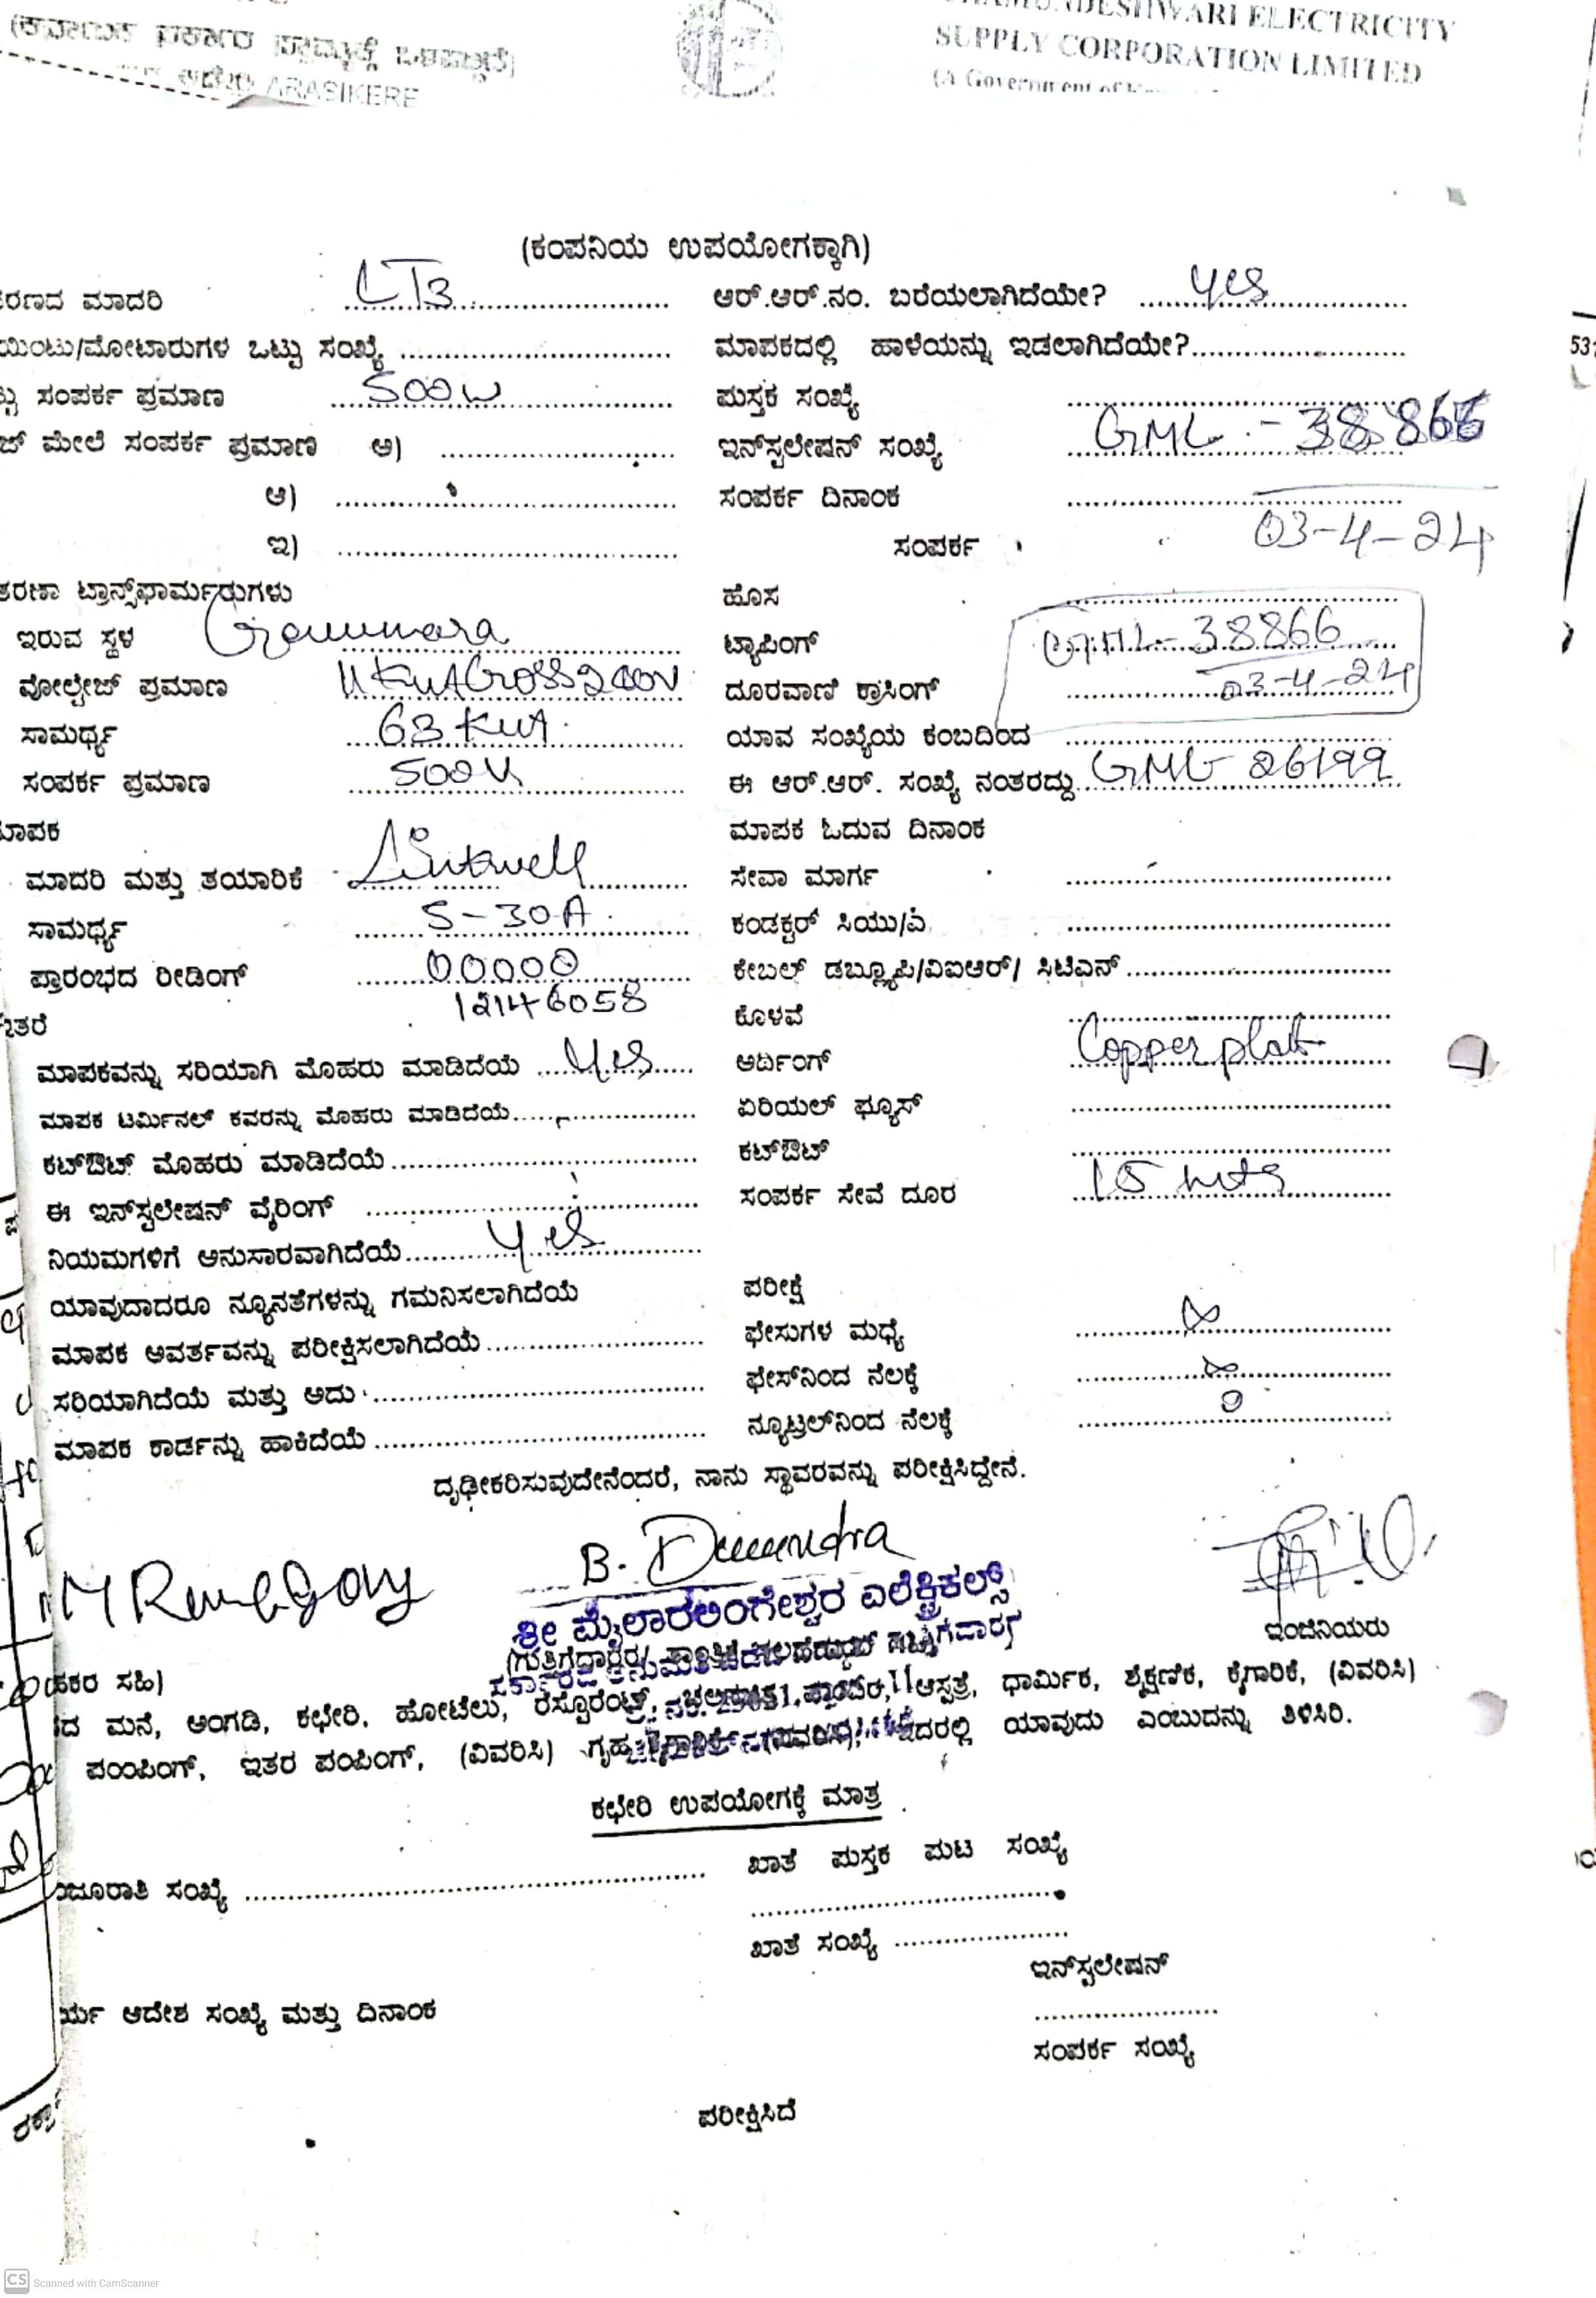 SUPPLY CORPORATION LIMITED
(A Government of
ARASIKERE
(ಕಂಪನಿಯ ಉಪಯೋಗಕ್ಕಾಗಿ)
ರಣದ ಮಾದರಿ LT3 ಆರ್.ಆರ್.ನಂ. ಬರೆಯಲಾಗಿದೆಯೇ? yes
ಯಿಂಟು/ಮೋಟಾರುಗಳ ಒಟ್ಟು ಸಂಖ್ಯೆ ಮಾಪಕದಲ್ಲಿ ಹಾಳೆಯನ್ನು ಇಡಲಾಗಿದೆಯೇ?
ಸಂಪರ್ಕ ಪ್ರಮಾಣ 500W ಪುಸ್ತಕ ಸಂಖ್ಯೆ
ಜ್ ಮೇಲೆ ಸಂಪರ್ಕ ಪ್ರಮಾಣ ಅ) ಇನ್‌ಸ್ಟಲೇಷನ್ ಸಂಖ್ಯೆ GML - 38866
ಆ) ಸಂಪರ್ಕ ದಿನಾಂಕ
ಇ) ಸಂಪರ್ಕ 03-4-24
ತರಣಾ ಟ್ರಾನ್ಸ್‌ಫಾರ್ಮರುಗಳು ಹೊಸ
ಇರುವ ಸ್ಥಳ ಟ್ಯಾಪಿಂಗ್ GML- 38866
ವೋಲ್ಟೇಜ್ ಪ್ರಮಾಣ ದೂರವಾಣಿ ಕ್ರಾಸಿಂಗ್ 03-4-24
ಸಾಮರ್ಥ್ಯ 63 KVA ಯಾವ ಸಂಖ್ಯೆಯ ಕಂಬದಿಂದ
ಸಂಪರ್ಕ ಪ್ರಮಾಣ ಈ ಆರ್.ಆರ್. ಸಂಖ್ಯೆ ನಂತರದ್ದು GML 26199
ಮಾಪಕ ಮಾಪಕ ಓದುವ ದಿನಾಂಕ
ಮಾದರಿ ಮತ್ತು ತಯಾರಿಕೆ ಸೇವಾ ಮಾರ್ಗ
ಸಾಮರ್ಥ್ಯ 5-30A ಕಂಡಕ್ಟರ್ ಸಿಯು/ಎ
ಪ್ರಾರಂಭದ ರೀಡಿಂಗ್ 00000 ಕೇಬಲ್ ಡಬ್ಲ್ಯೂಪಿ/ವಿಐಆರ್/ ಸಿಟಿಎನ್
ಇತರೆ 12146058 ಕೊಳವೆ
ಮಾಪಕವನ್ನು ಸರಿಯಾಗಿ ಮೊಹರು ಮಾಡಿದೆಯೆ Yes ಅರ್ದಿಂಗ್ Copper plat
ಮಾಪಕ ಟರ್ಮಿನಲ್ ಕವರನ್ನು ಮೊಹರು ಮಾಡಿದೆಯೆ ಏರಿಯಲ್ ಫ್ಯೂಸ್
ಕಟ್‌ಔಟ್ ಮೊಹರು ಮಾಡಿದೆಯೆ ಕಟ್‌ಔಟ್
ಈ ಇನ್‌ಸ್ಟಲೇಷನ್ ವೈರಿಂಗ್ ಸಂಪರ್ಕ ಸೇವೆ ದೂರ 15 mts
ನಿಯಮಗಳಿಗೆ ಅನುಸಾರವಾಗಿದೆಯೆ Yes
ಯಾವುದಾದರೂ ನ್ಯೂನತೆಗಳನ್ನು ಗಮನಿಸಲಾಗಿದೆಯೆ ಪರೀಕ್ಷೆ
ಮಾಪಕ ಆವರ್ತವನ್ನು ಪರೀಕ್ಷಿಸಲಾಗಿದೆಯೆ ಫೇಸುಗಳ ಮಧ್ಯೆ ∞
ಸರಿಯಾಗಿದೆಯೆ ಮತ್ತು ಅದು ಫೇಸ್‌ನಿಂದ ನೆಲಕ್ಕೆ ∞
ಮಾಪಕ ಕಾರ್ಡನ್ನು ಹಾಕಿದೆಯೆ ನ್ಯೂಟ್ರಲ್‌ನಿಂದ ನೆಲಕ್ಕೆ 0
ದೃಢೀಕರಿಸುವುದೇನೆಂದರೆ, ನಾನು ಸ್ಥಾವರವನ್ನು ಪರೀಕ್ಷಿಸಿದ್ದೇನೆ.
ಶ್ರೀ ಮೈಲಾರಲಿಂಗೇಶ್ವರ ಎಲೆಕ್ಟ್ರಿಕಲ್ಸ್
ಇಂಜಿನಿಯರು
ಹಕರ ಸಹಿ)
ದ ಮನೆ, ಅಂಗಡಿ, ಕಛೇರಿ, ಹೋಟೆಲು, ರೆಸ್ಟೊರಂಟ್ಸ್, ಆಸ್ಪತ್ರೆ, ಧಾರ್ಮಿಕ, ಶೈಕ್ಷಣಿಕ, ಕೈಗಾರಿಕೆ, (ವಿವರಿಸಿ)
ಪಂಪಿಂಗ್, ಇತರ ಪಂಪಿಂಗ್, (ವಿವರಿಸಿ) ಇದರಲ್ಲಿ ಯಾವುದು ಎಂಬುದನ್ನು ತಿಳಿಸಿರಿ.
ಕಛೇರಿ ಉಪಯೋಗಕ್ಕೆ ಮಾತ್ರ
ಜೂರಾತಿ ಸಂಖ್ಯೆ ಖಾತೆ ಪುಸ್ತಕ ಪುಟ ಸಂಖ್ಯೆ
ಖಾತೆ ಸಂಖ್ಯೆ
ಇನ್‌ಸ್ಟಲೇಷನ್
ರ್ಯ ಆದೇಶ ಸಂಖ್ಯೆ ಮತ್ತು ದಿನಾಂಕ
ಸಂಪರ್ಕ ಸಂಖ್ಯೆ
ಪರೀಕ್ಷಿಸಿದೆ
CS Scanned with CamScanner